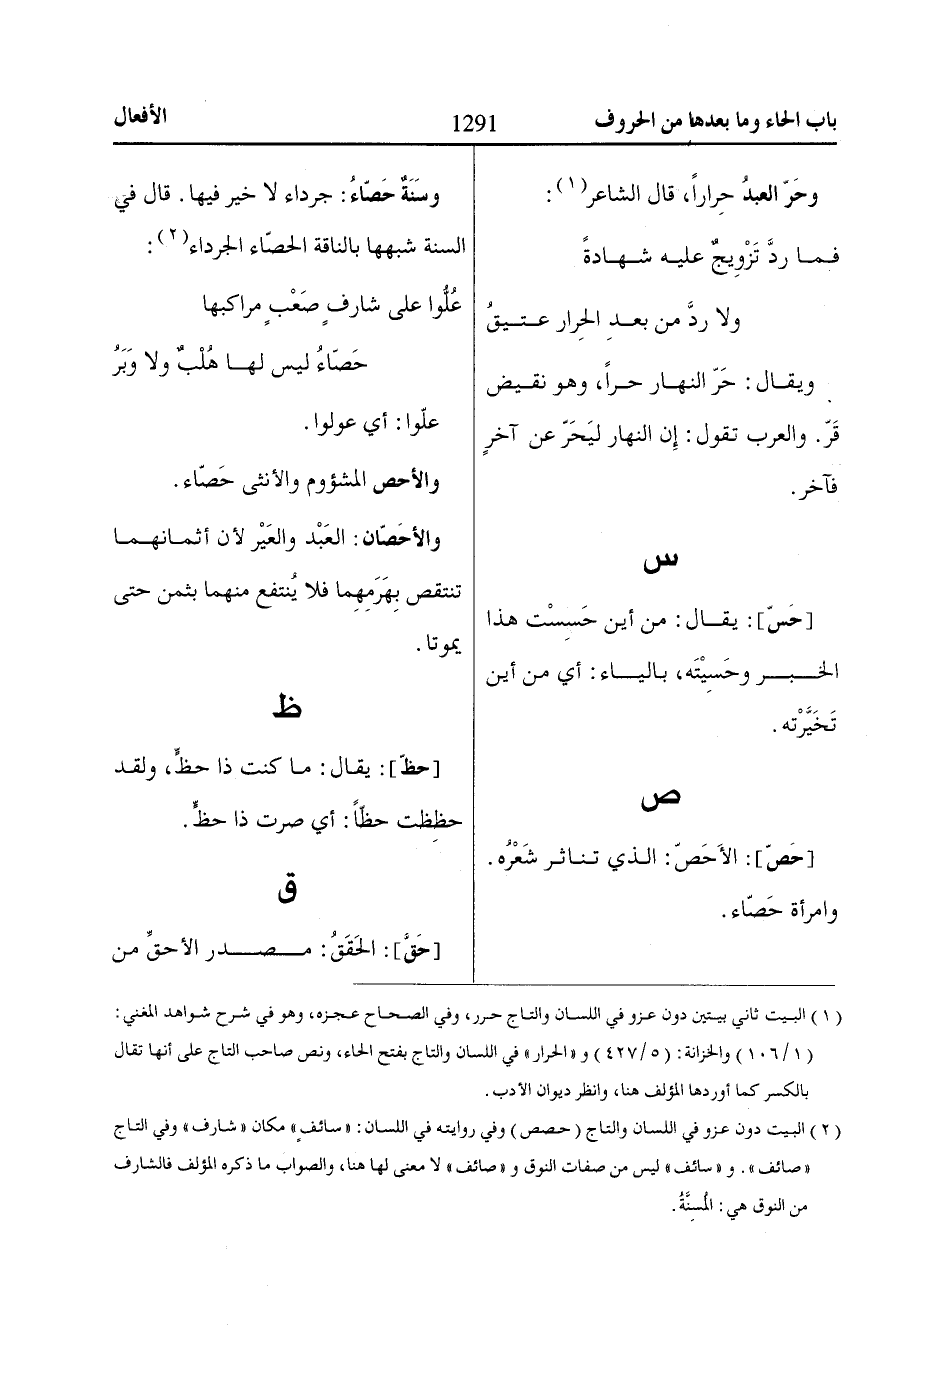 باب الحاء وما بعدها من الحروف 1291 الأفعال
وحَرّ العبدُ حِراراً، قال الشاعر(١):
فـمـا ردَّ تَزْوِيجٌ عليـه شـهـادةً
ولا ردَّ من بعـد الحِرار عـتـيـقُ
ويقـال: حَرّ النهـار حـراً، وهـو نقـيـض
قَرّ. والعرب تـقول: إن النهار ليَحَرّ عن آخرٍ
فآخر.
س
[حَسّ]: يقـال: من أين حَسِسْت هذا
الخـبـر وحَسِيْتَه، باليـاء: أي من أين
تَخَيَّرْته.
ص
[حَصّ]: الأَحَصّ: الـذي تـنـاثـر شَعْرُه.
وامرأة حَصّاء.
وسَنَةٌ حَصّاءُ: جرداء لا خير فيها. قال في
السنة شبهها بالناقة الحصّاء الجرداء(٢):
عُلُّوا على شارفٍ صَعْبٍ مراكبها
حَصّاءُ ليس لهـا هُلْبٌ ولا وَبَرُ
علّوا: أي عولوا.
والأحص المشؤوم والأنثى حَصّاء.
والأحَصّان: العَبْد والعَيْر لأن أثمـانهـمـا
تنتقص بِهَرَمِهِما فلا يُنتفع منهما بثمن حتى
يموتا.
ظ
[حظّ]: يقال: ما كنت ذا حظٍّ، ولقـد
حظِظت حظّاً: أي صرت ذا حظٍّ.
ق
[حَقَّ]: الحَقَقُ: مـصـدر الأحقِّ مـن
(١) البيت ثاني بيتين دون عزو في اللسان والتاج حرر، وفي الصحاح عجزه، وهو في شرح شواهد المغني:
(١٠٦/١) والخزانة: (٤٢٧/٥) و «الحرار» في اللسان والتاج بفتح الحاء، ونص صاحب التاج على أنها تقال
بالكسر كما أوردها المؤلف هنا، وانظر ديوان الأدب.
(٢) البيت دون عزو في اللسان والتاج (حصص) وفي روايته في اللسان: «سائفٍ» مكان «شارف» وفي التاج
«صائف». و «سائف» ليس من صفات النوق و «صائف» لا معنى لها هنا، والصواب ما ذكره المؤلف فالشارف
من النوق هي: المُسِنَّةُ.